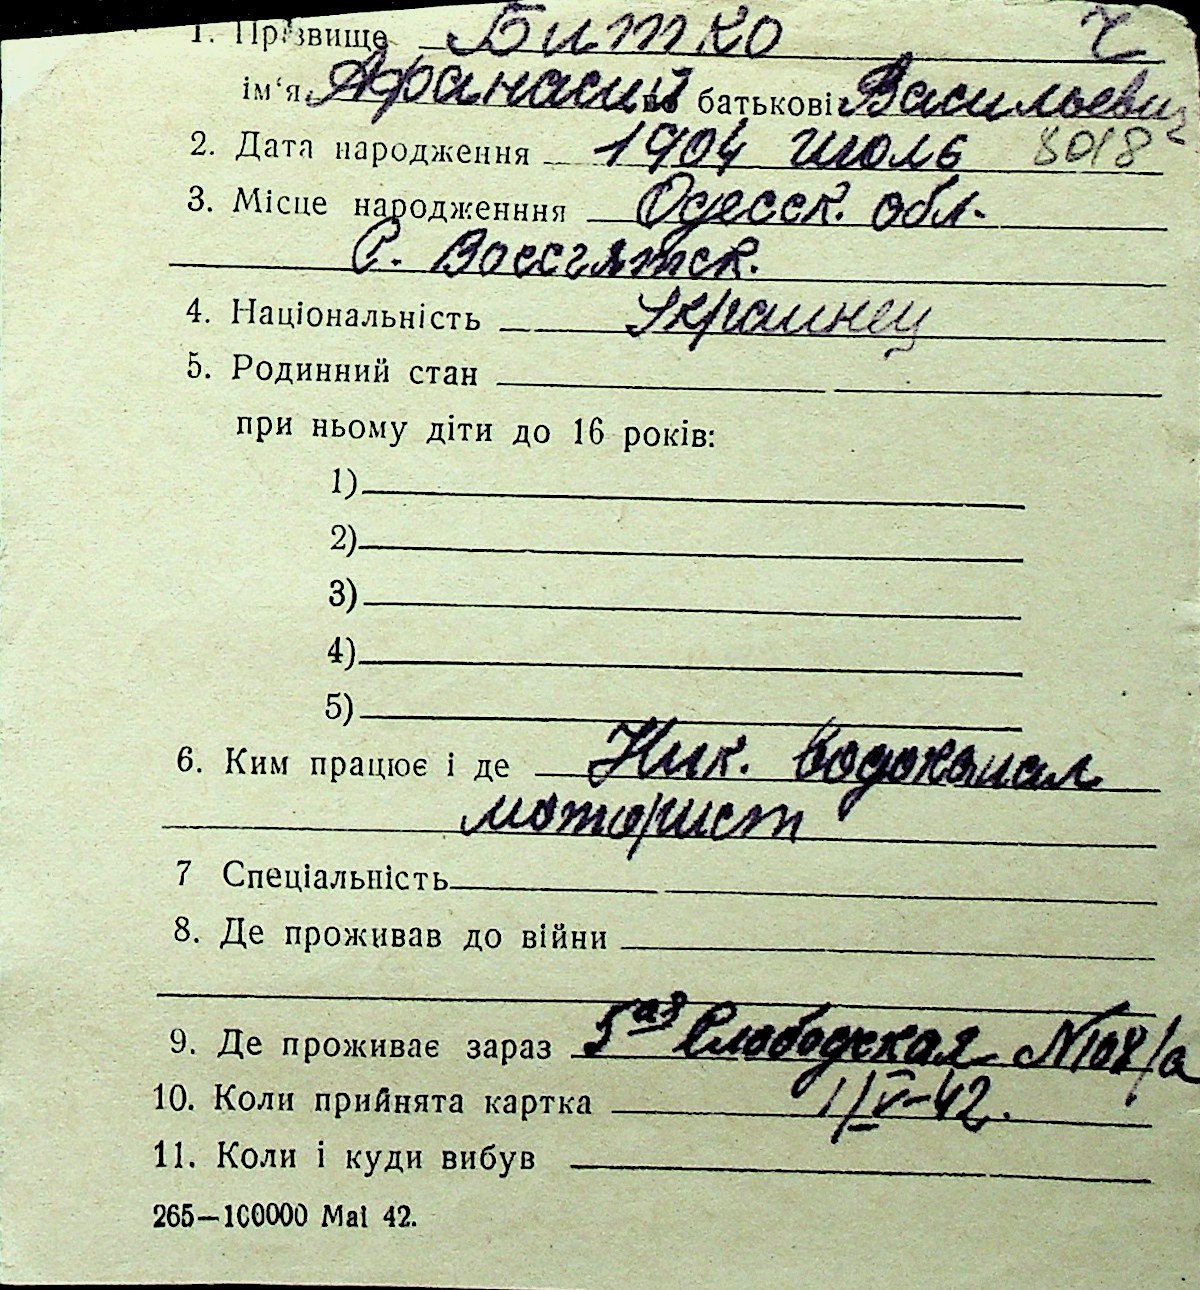 1. Прізвище Битко Ч
ім'я Афанасий по батькові Васильевич
2. Дата народження 1904 июль 8018
3. Місце народженння Одесск. обл.
С. Воссиятск.
4. Національність Украинец
5. Родинний стан
при ньому діти до 16 років:
1)
2)
3)
4)
5)
6. Ким працює і де Ник. водоканал
моторист
7 Спеціальність
8. Де проживав до війни
9. Де проживає зараз 5ая Слободская №108/а
10. Коли прийнята картка 1/V-42.
11. Коли і куди вибув
265—100000 Mai 42.